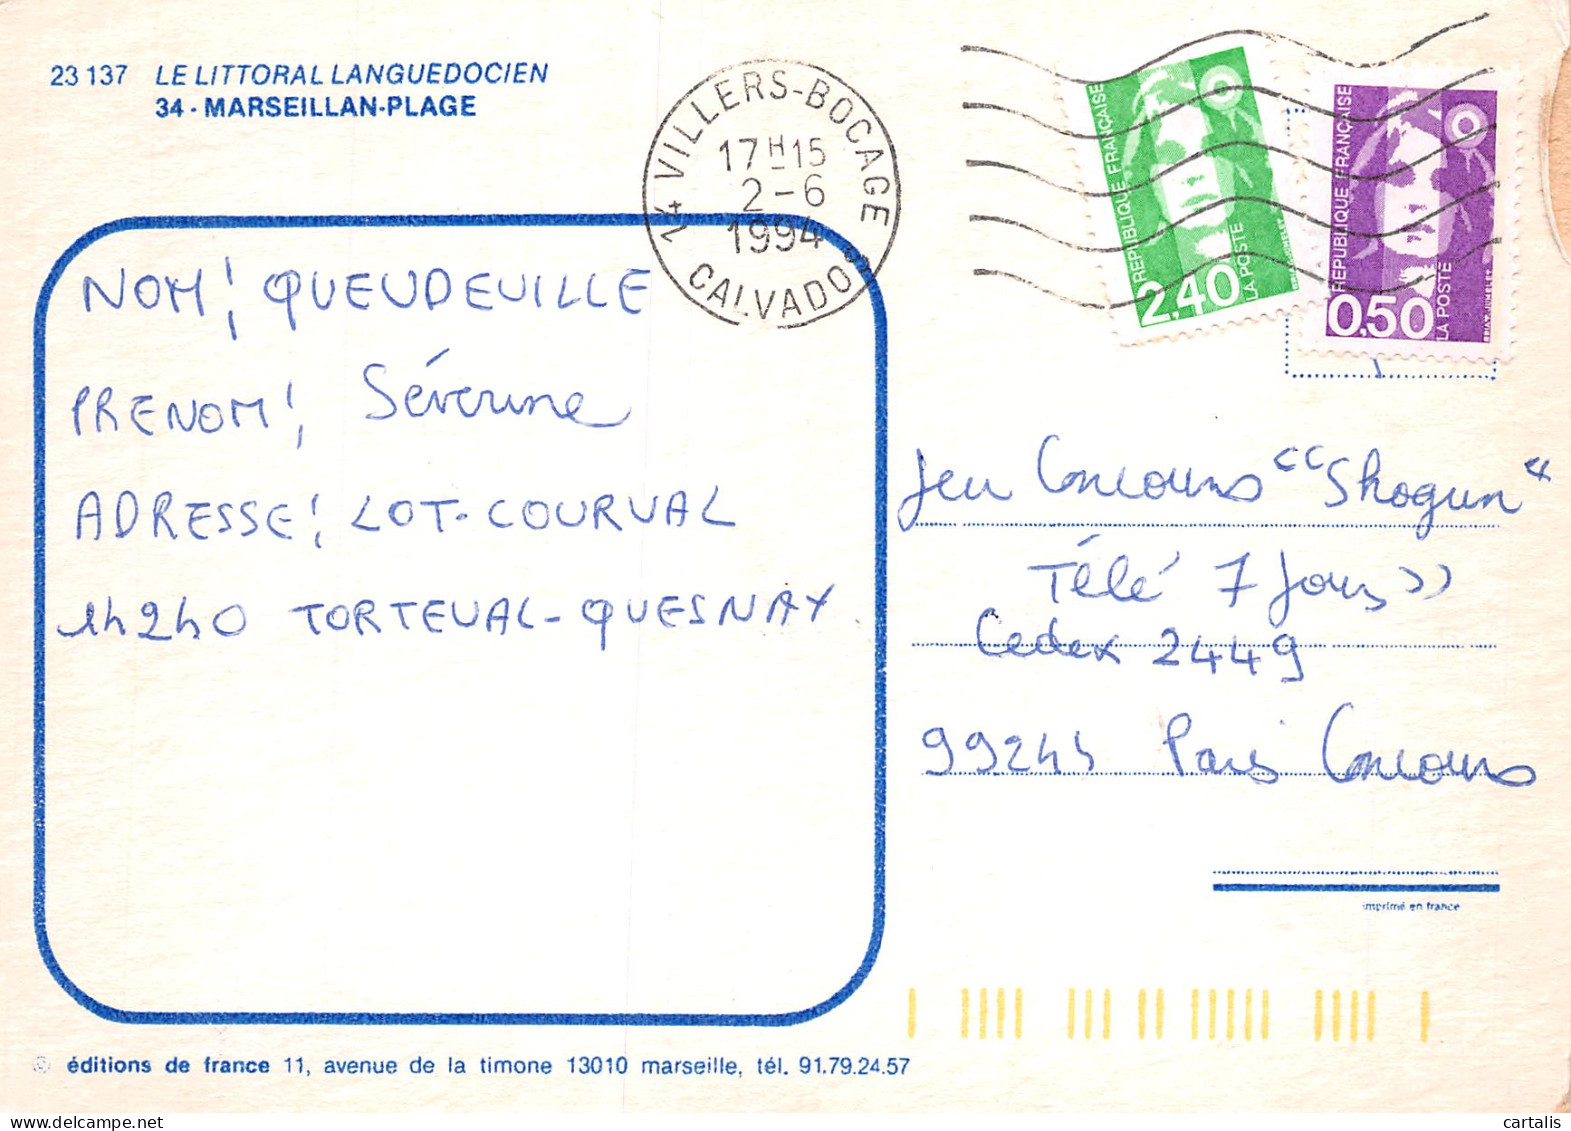 23 137 LE LITTORAL LANGUEDOCIEN
34 - MARSEILLAN-PLAGE
14 VILLERS-BOCAGE
17H15
2-6
1994
CALVADOS
REPUBLIQUE FRANÇAISE
2,40
LA POSTE
REPUBLIQUE FRANÇAISE
0,50
LA POSTE
NOM: QUEUDEVILLE
PRENOM: Séverine
ADRESSE: LOT-COURVAL
14240 TORTEVAL-QUESNAY.
Jeu Concours "Shogun"
Télé 7 Jours»
Cedex 2449
99244 Paris Concours
imprimé en france
éditions de france 11, avenue de la timone 13010 marseille, tél. 91.79.24.57
cartalis